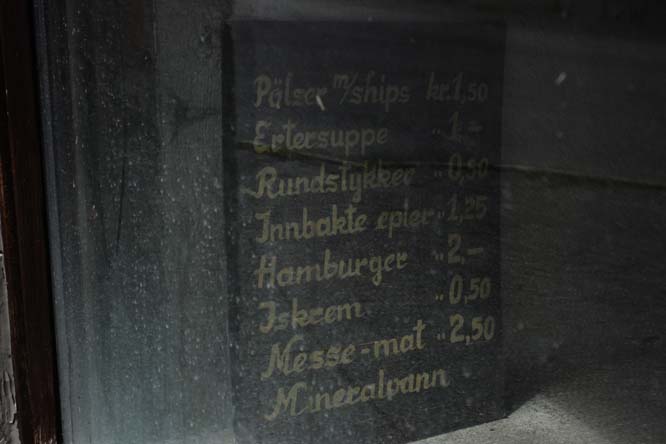 Pälser m/ships kr. 1,50
Ertersuppe " 1.-
Rundstykker " 0,50
Innbakte epler " 1,25
Hamburger " 2,-
Iskrem " 0,50
Messe-mat " 2,50
Mineralvann